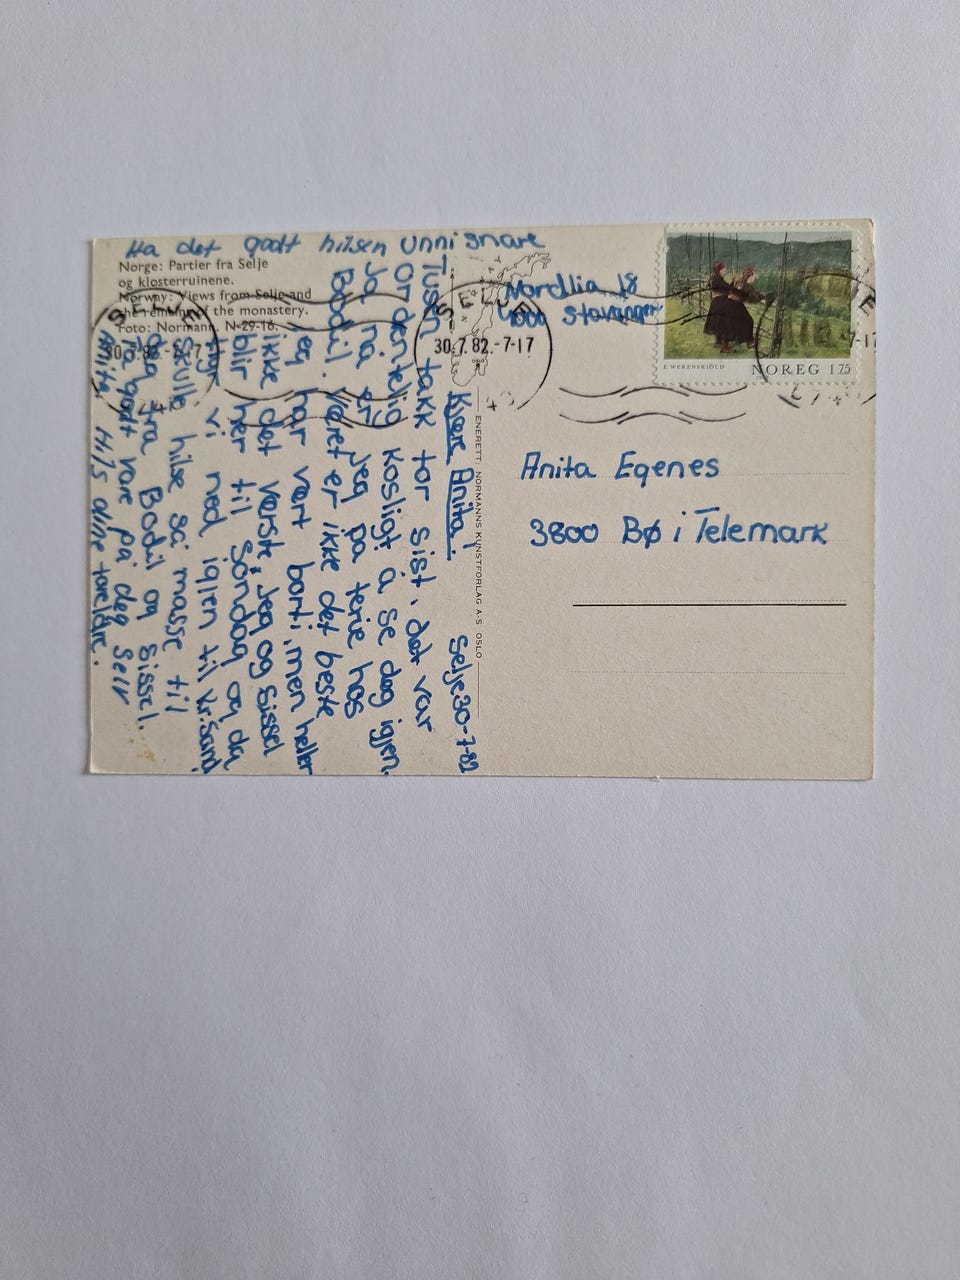 Ha det godt hilsen Unni Snare
Norge: Partier fra Selje
og klosterruinene.
Norway: Views from Selje and
the remains of the monastery.
Foto: Normann. N-29-16.
Selje 30-7-82
Kjære Anita!
Tusen takk for sist, det var
ordentelig kosligt å se deg igjen.
Ja nå er jeg på ferie hos
Bodil. Været er ikke det beste
jeg har vært borti, men heller
ikke det verste. Jeg og Sissel
blir her til Søndag og da
flyr vi ned igjen til Kr.Sand
Skulle hilse så masse til
deg fra Bodil og Sissel.
Ha godt vore på deg selv
Anita. Hils dine foreldre.
ENERETT: NORMANNS KUNSTFORLAG A/S OSLO
OSLO
SELJE
30.7.82.-7-17
SELJE
30.7.82.-7-17
Nordlia 18
4000 Stavanger
E. WERENSKIOLD
NOREG 175
Anita Egenes
3800 Bø i Telemark